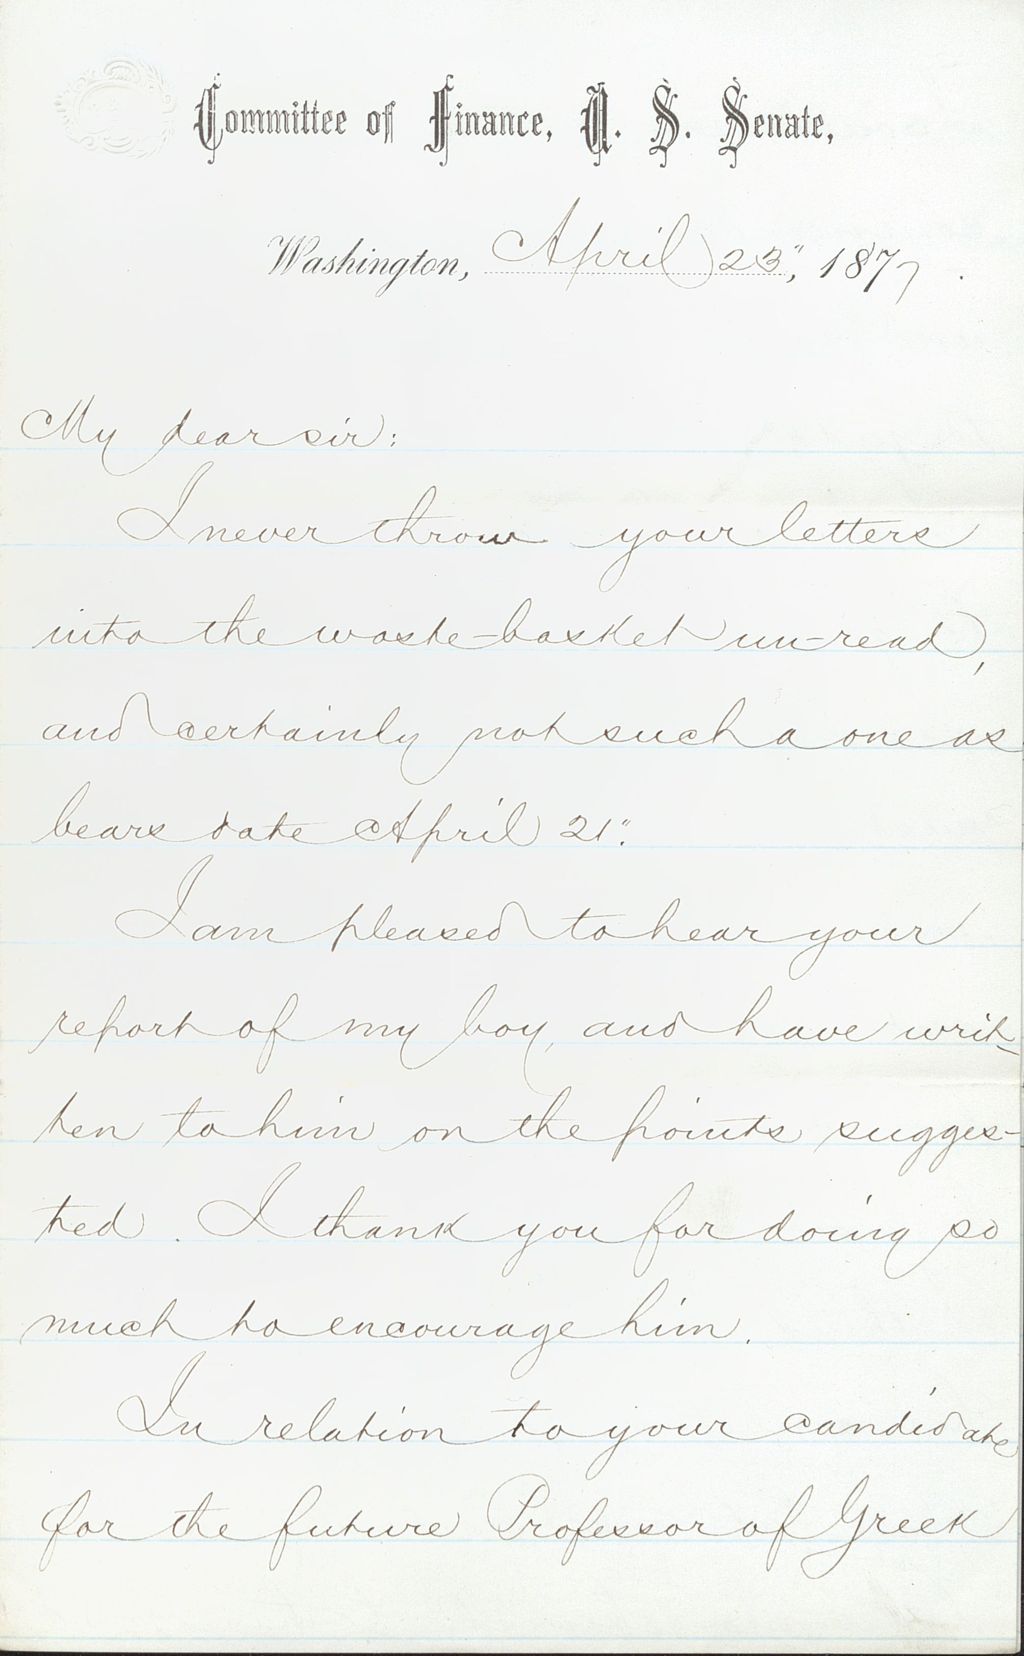 Committee of Finance, U. S. Senate,
Washington, April 23", 1877.
My dear sir:
I never throw your letters
into the waste-basket un-read,
and certainly not such a one as
bears date April 21".
I am pleased to hear your
report of my boy, and have writ-
ten to him on the points sugges-
ted. I thank you for doing so
much to encourage him.
In relation to your candidate
for the future Professor of Greek